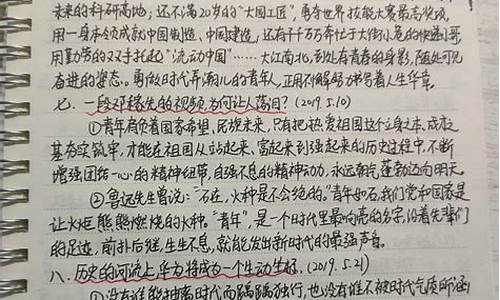 未来的科研高地；还不满20岁的“大国工匠”，勇夺世界技能大赛最高奖项，
用一身本领成就中国制造、中国建造；还有千千万万奔忙于大街小巷的快递小哥
用勤劳的双手托起“流动中国”……大江南北，到处有青春的身影，随处可见
奋进的姿态。勇做时代弄潮儿的青年人，正用不懈努力书写着人生华章。
七、一段邓稼先的视频，为何让人落泪？(2019.5.10)
①青年肩负着国家希望、民族未来，只有把热爱祖国这个立身之本、成才之
基夯实筑牢，才能在祖国从站起来、富起来到强起来的历史过程中，不断
增强团结一心的精神纽带、自强不息的精神动力，永远朝气蓬勃迈向明天。
②鲁迅先生曾说：“石在，火种是不会绝的。”青年如石，我们党和国家是
让火炬熊熊燃烧的火种。“青年”，是一个时代里最响亮的名字，沿着先辈们
的足迹，前扑后继，生生不息，就能发出新时代的最强声音。
八、历史的河流上，华为将成为一个生动坐标。(2019.5.21)
①没有谁能抽离时代而踽踽独行，也没有谁不被时代气质所涵